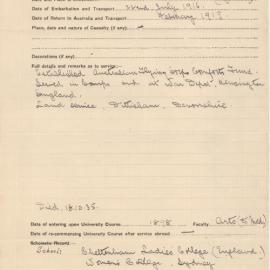 Date of Embarkation and Transport 22nd July, 1916.
Date of Return to Australia and Transport February 1918
Place, date and nature of Casualty (if any)
Decorations (if any)
Full details and remarks as to service:
Established Australian Flying Corps Comforts Fund.
Served in Comforts and at War Depot Kensington
England.
Land service, Dittisham, Devonshire
Died 18.10.35.
Date of entering upon University Course 1898 Faculty Arts
Date of re-commencing University Course after service abroad
Scholastic Record:
School: Cheltenham Ladies College (England)
Women's College, Sydney